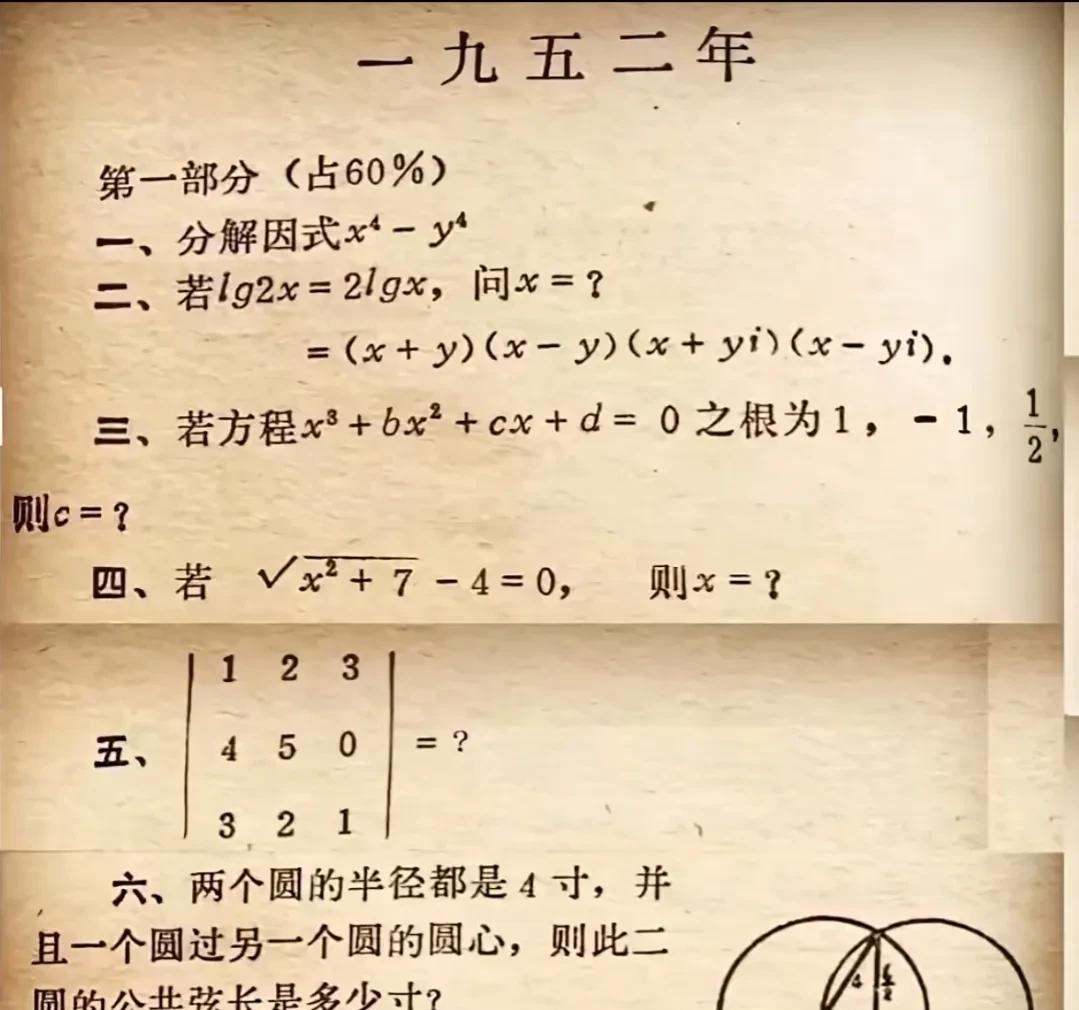 一九五二年
第一部分（占60％）
一、分解因式x⁴－y⁴
二、若lg2x＝2lgx，问x＝？
＝(x＋y)(x－y)(x＋yi)(x－yi).
三、若方程x³＋bx²＋cx＋d＝0之根为1，－1，1/2，
则c＝？
四、若 √(x²＋7)－4＝0， 则x＝？
1 2 3
五、 4 5 0 ＝？
3 2 1
六、两个圆的半径都是4寸，并
且一个圆过另一个圆的圆心，则此二
圆的公共弦长是多少寸？
4